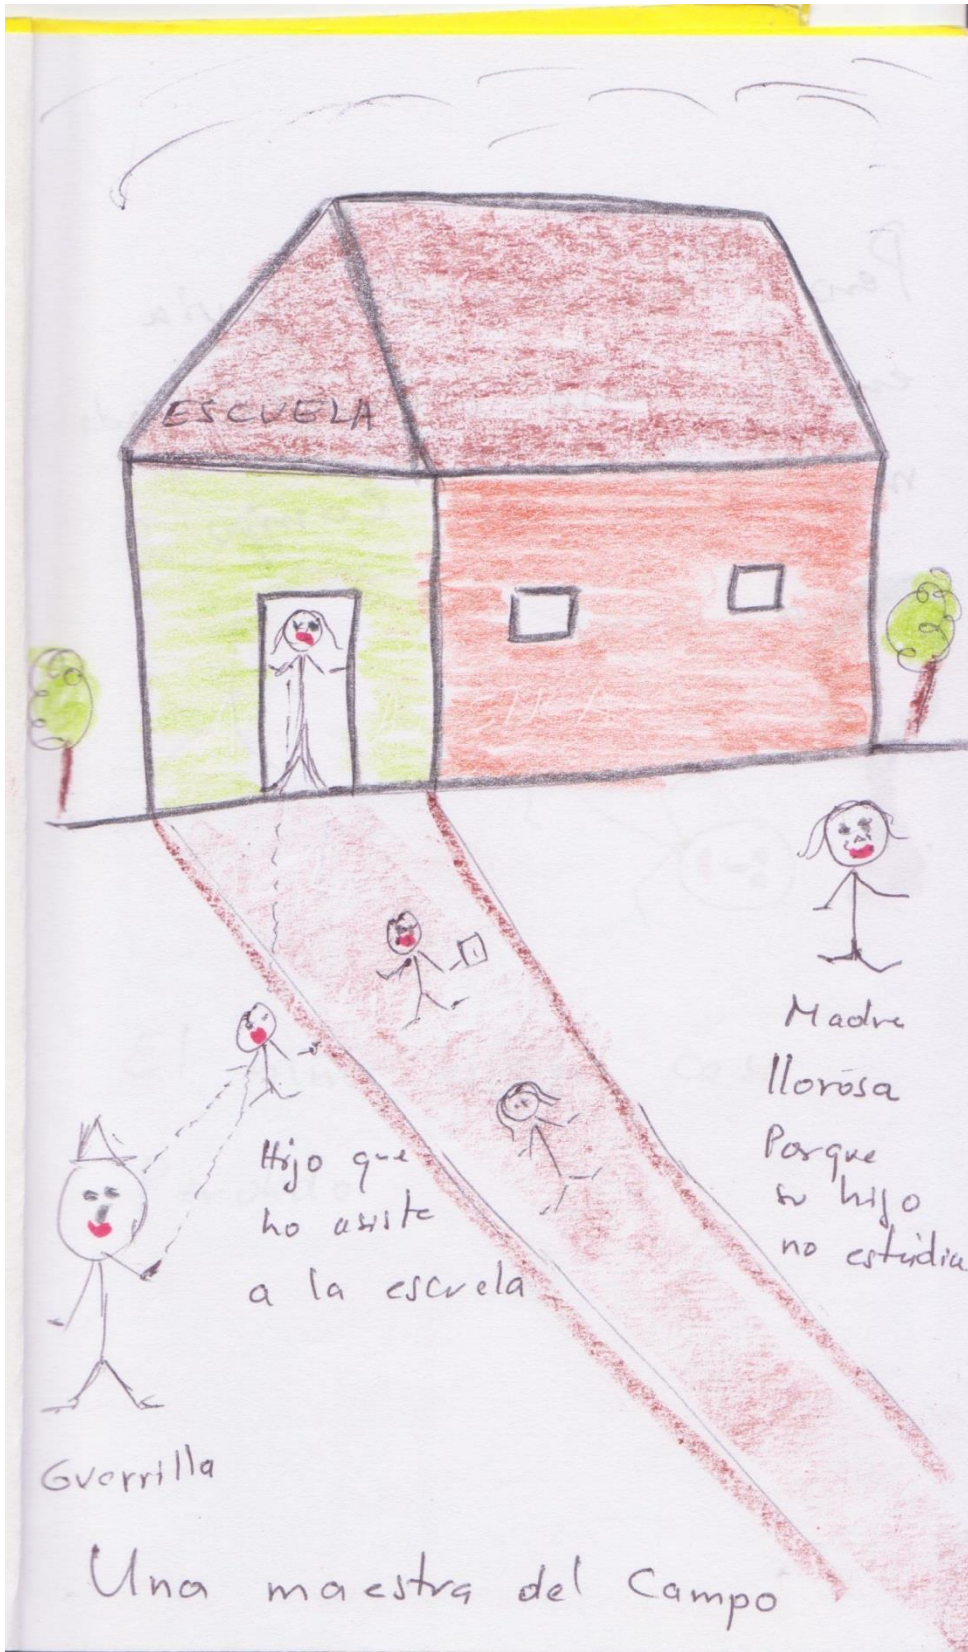 ESCUELA
Madre
llorosa
Porque
su hijo
no estudia
Hijo que
no asiste
a la escuela
Guerrilla
Una maestra del Campo